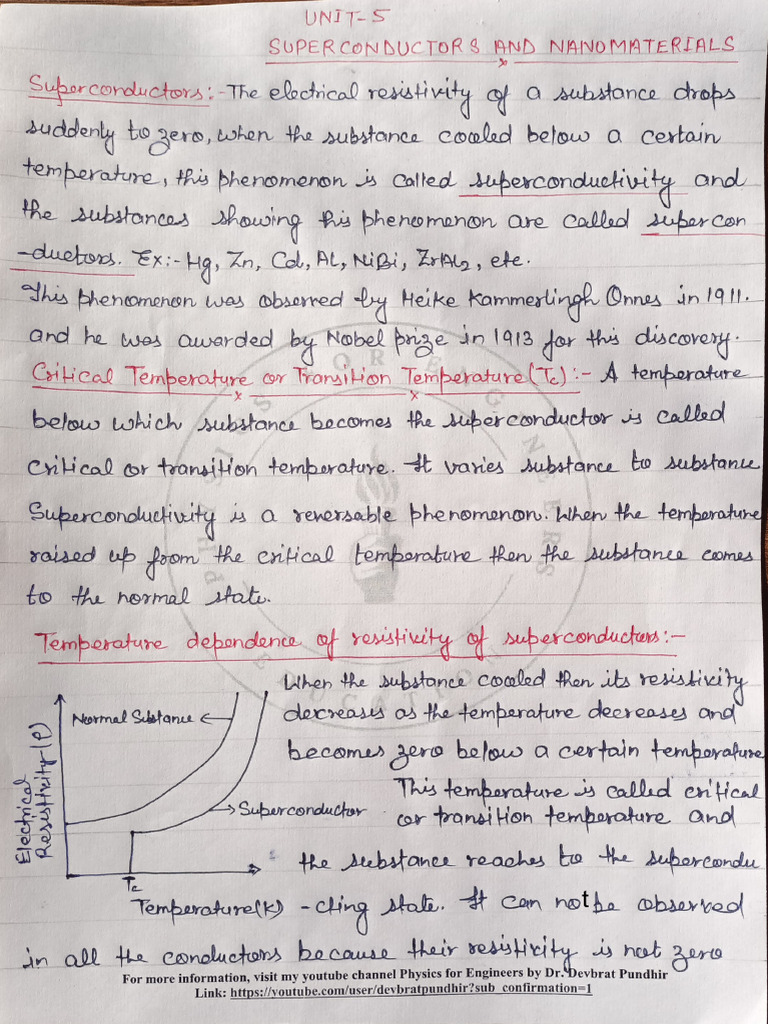 UNIT-5
SUPERCONDUCTORS AND NANOMATERIALS
Superconductors:-The electrical resistivity of a substance drops
suddenly to zero, when the substance cooled below a certain
temperature, this phenomenon is called superconductivity and
the substances showing this phenomenon are called supercon
-ductors. Ex:- Hg, Zn, Cd, Al, NiBi, ZrAl2, etc.
This phenomenon was observed by Heike Kammerlingh Onnes in 1911.
and he was awarded by Nobel prize in 1913 for this discovery.
Critical Temperature or Transition Temperature(Tc):- A temperature
below which substance becomes the superconductor is called
critical or transition temperature. It varies substance to substance
Superconductivity is a reversable phenomenon. When the temperature
raised up from the critical temperature then the substance comes
to the normal state.
Temperature dependence of resistivity of superconductors:-
When the substance cooled then its resistivity
decreases as the temperature decreases and
becomes zero below a certain temperature
This temperature is called critical
or transition temperature and
the substance reaches to the supercondu
-cting state. It can not be observed
in all the conductors because their resistivity is not zero
Normal Substance
Superconductor
Electrical
Resistivity-(ρ)
Tc
Temperature(K)
PHYSICS FOR ENGINEERS
For more information, visit my youtube channel Physics for Engineers by Dr. Devbrat Pundhir
Link: https://youtube.com/user/devbratpundhir?sub_confirmation=1